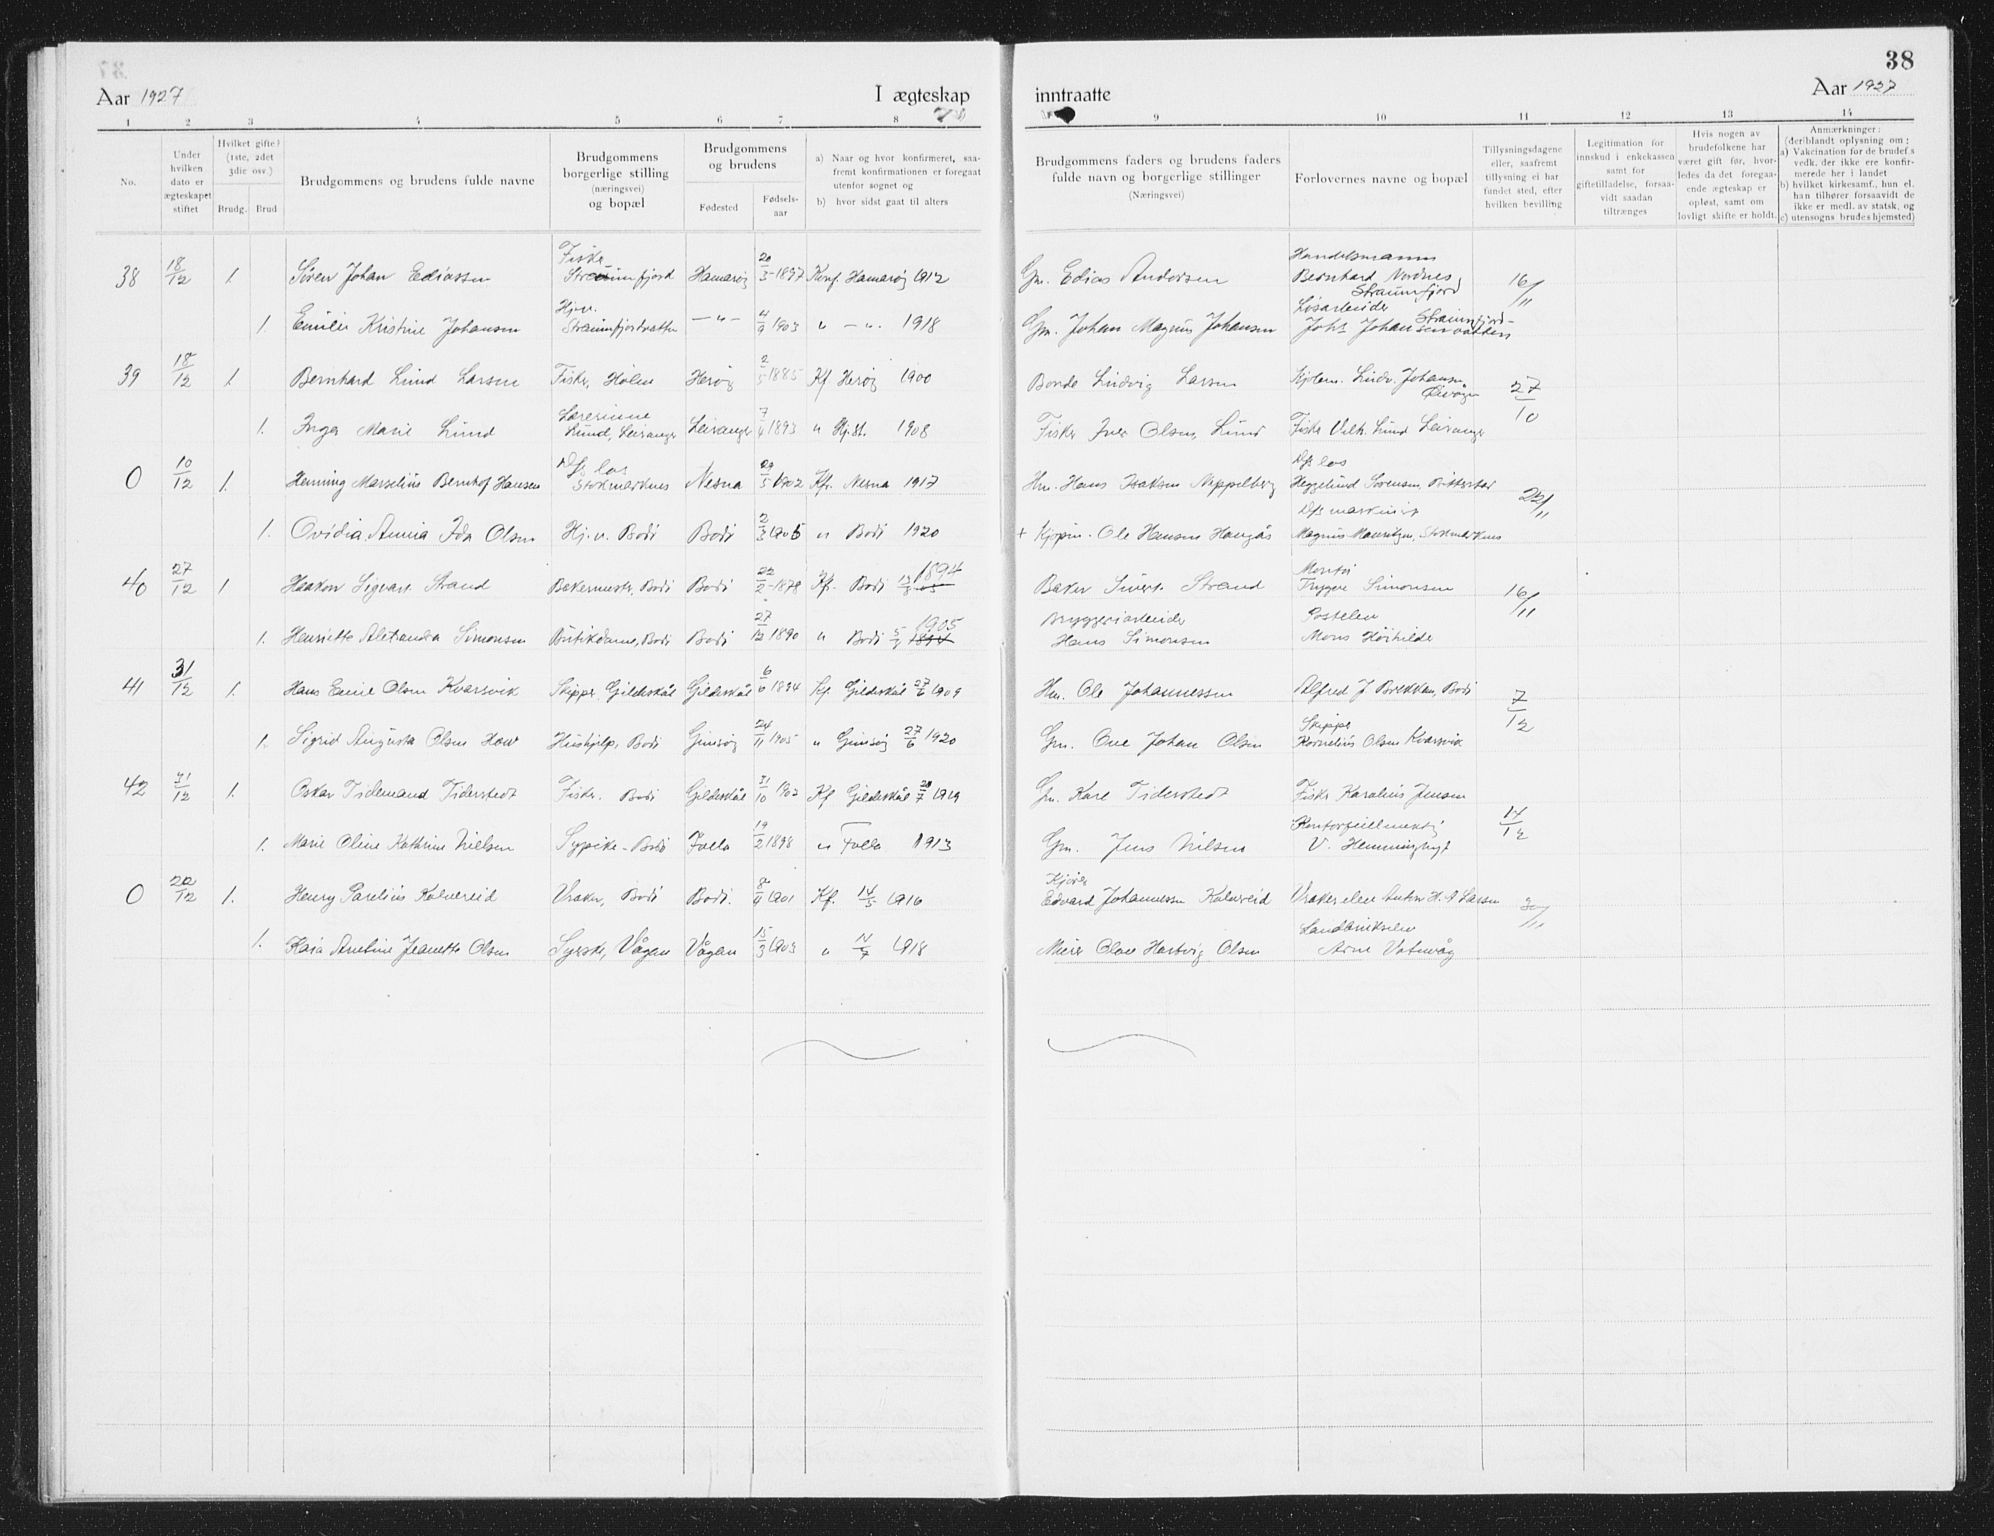 38
Aar 1927
I ægteskap
inntraatte
Aar 1927
1 2 3 4 5 6 7 8 9 10 11 12 13 14
No.
Under hvilken dato er ægteskapet stiftet
Hvilket gifte? (1ste, 2det 3die osv.)
Brudg. Brud
Brudgommens og brudens fulde navne
Brudgommens borgerlige stilling (næringsvei) og bopæl
Brudgommens og brudens
Fødested
Fødsels-aar
a) Naar og hvor konfirmeret, saafremt konfirmationen er foregaat utenfor sognet og
b) hvor sidst gaat til alters
Brudgommens faders og brudens faders fulde navn og borgerlige stillinger
(Næringsvei)
Forlovernes navne og bopæl
Tillysningsdagene eller, saafremt tillysning ei har fundet sted, efter hvilken bevilling
Legitimation for innskud i enkekassen samt for giftetilladelse, forsaavidt saadan tiltrænges
Hvis nogen av brudefolkene har været gift før, hvorledes da det foregaaende ægteskap er opløst, samt om lovligt skifte er holdt.
Anmærkninger: (deriblandt oplysning om:
a) Vakcination for de brudef.s vedk. der ikke ere konfirmerede her i landet
b) hvilket kirkesamf., hun el. han tilhører forsaavidt de ikke er medl. av statsk. og
c) utensogns brudes hjemsted)
38 18/12 1. Søren Johan Ediassen Fisker Straumfjord Hamarøy 20/3-1897 Konf. Hamarøy 1912 Gm. Edias Andersen Handelsmann Bernhard Nordnes Straumfjord 16/11
1. Emilie Kristine Johansen Hj.v. Straumfjordvatten -"- 4/9 1903 " -". 1918 Gm. Johan Magnus Johansen Løsarbeider Johs Johansen Straumfjordvatten
39 18/12 1. Bernhard Lund Larsen Fisker, Holen Herøy 2/5 1885 Kf Herøy 1900 Bonde Ludvig Larsen Ludv. Johansen 27/10
1. Inga Marie Lund Lærerinne Lund, Leiranger Leiranger 7/4 1893 " Hj.st. 1908 Fisker Iver Olsen, Lund Fisker Vilh. Lund Leiranger
0 10/12 1. Henning Marselius Bernhof Hansen D/s los Stokmarknes Nesna 29/5 1902 Kfr. Nesna 1917 Hm. Hans Isaksen Neppelberg D/s los Heggelund Sørensen, 22/11
1. Ovidia Annia Ida Olsen Hj.v. Bodø Bodø 2/3 1905 " Bodø 1920 + Kjøpm. Ole Hansen Haugås D/s maskinist Magnus Mauritzen, Stokmarknes
40 27/12 1 Haakon Sigvart Strand Bakermester, Bodø Bodø 22/2-1878 Kfr. Bodø 1894 Baker Sivert Strand Montør Trygve Simonsen 16/11
1. Henriette Alexandra Simonsen Butikdame, Bodø Bodø 27/12 1890 " Bodø 1905 Bryggeriarbeider Hans Simonsen Mons Høihilder
41 31/12 1. Hans Emil Olsen Kvarsvik Skipper Gildeskål Gildeskål 6/6 1894 Kf Gildeskål 27/6 1909 Hm. Ole Johannessen Alfred J Brekkan, Bodø 7/12
1. Sigrid Augusta Olsen Hov Hushjelp, Bodø Gimsøy 24/11 1905 " Gimsøy 27/6 1920 Gm. Ove Johan Olsen Skipper Kornelius Olsen Kvarsvik
42 31/12 1. Oskar Tidemand Tiderstedt Fisker. Bodø Gildeskål 31/10 1902 Kf Gildeskål 20/7 1919 Gm. Karl Tiderstedt Fisker Karolius Jensen 14/12
1. Marie Oline Kathrine Nilsen Sypike - Bodø Folla 19/2 1898 " Folla 1913 Gm. Jens Nilsen Kontorfullmektig V. Hemminghyt
0 20/12 1. Henry Parelius Kalvereid Vraker, Bodø Bodø. 8/4 1901 Kf. 14/5 1916 Kjører Edvard Johannessen Kalvereid Vrakerelev Anton H. A Larsen 30/11
1. Kaia Anetine Jeanette Olsen Syerske, Vågan Vågan 15/3 1903 " 14/7 1918 Murer Olav Hartvig Olsen Landbrukselev Arne Vatnvåg